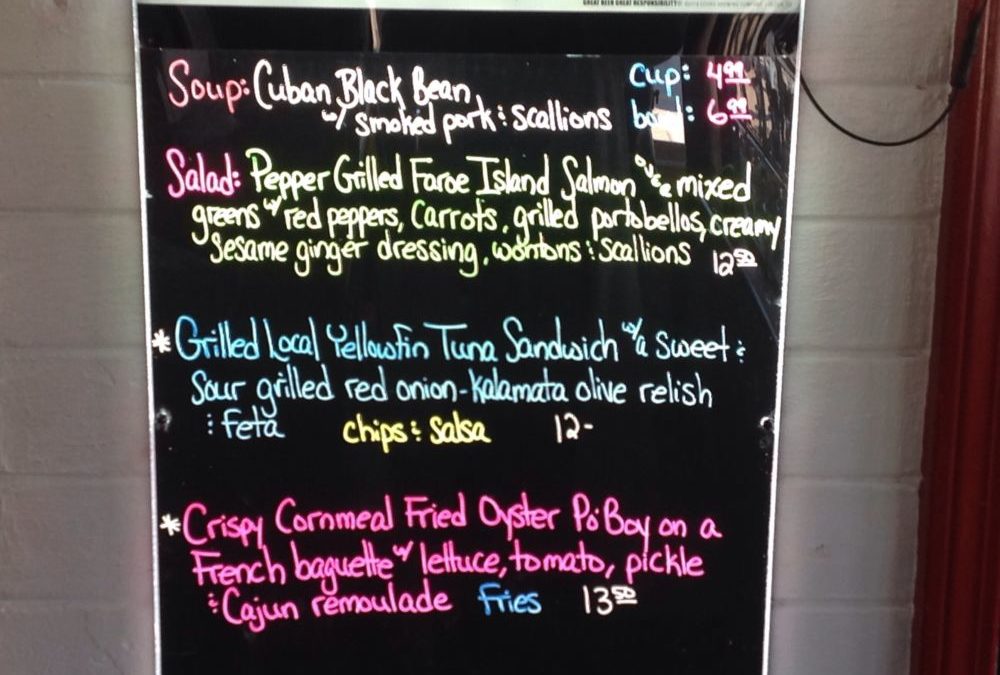 GREAT BEER GREAT RESPONSIBILITY
Soup: Cuban Black Bean cup: 4.99
w/ smoked pork & scallions bowl: 6.99
Salad: Pepper Grilled Faroe Island Salmon over mixed
greens w/ red peppers, carrots, grilled portobellos, creamy
sesame ginger dressing, wontons & scallions 12.50
*Grilled Local Yellowfin Tuna Sandwich w/a sweet &
sour grilled red onion-kalamata olive relish
& feta chips & salsa 12-
*Crispy Cornmeal Fried Oyster Po'Boy on a
French baguette w/ lettuce, tomato, pickle
& Cajun remoulade fries 13.50